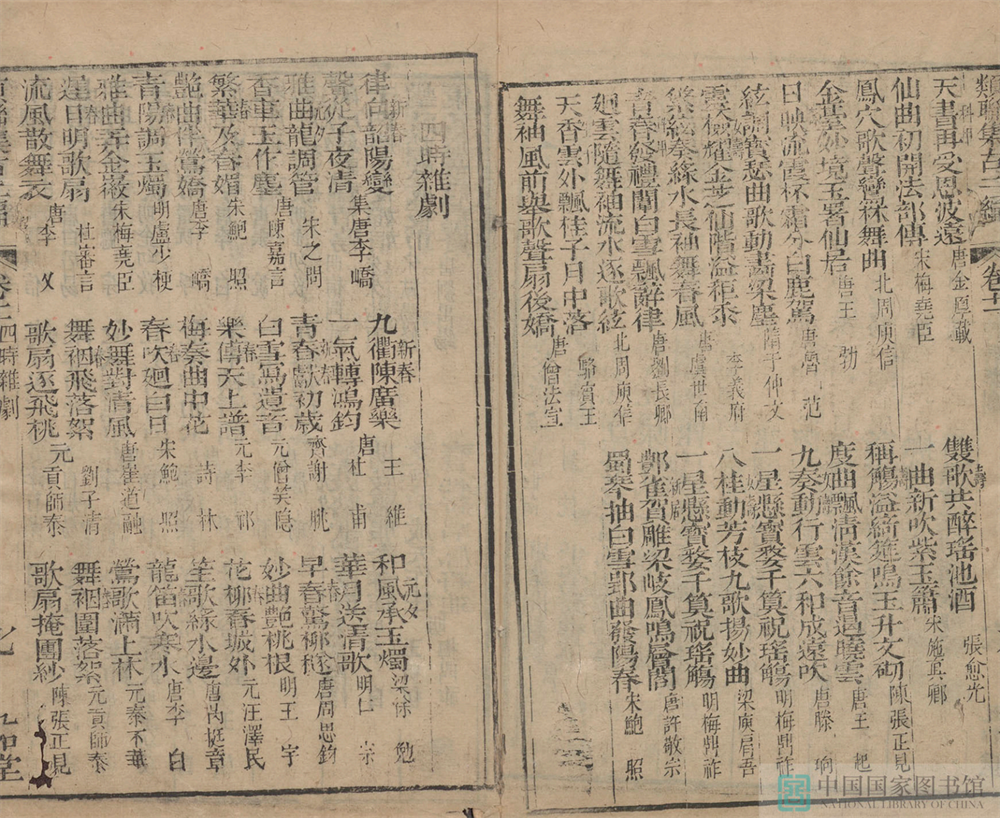 天書再受恩波遠 唐金厚載 雙歌共醉瑤池酒 張愈光
仙曲初開法部傳 宋梅堯臣 一曲新吹紫玉簫 宋施耳卿
鳳穴歌聲 舞曲 北周庾信 稱觴溢綺筵鳴玉升文砌 陳張正見
金堂 境玉 仙居 唐王勃 度曲飄清漢餘音遏曉雲 唐王起
日映流霞杯霜分白鹿駕 唐曹范 九奏動行雲六和成遠吹 唐滕珦
絃調寶瑟曲歌動畫梁塵 隋于仲文 一星懸寶婺千筭祝瑤觴 明梅鼎祚
雲 耀金芝仙階溢秬黍 李義府 八桂動芳枝九歌揚妙曲 梁庾肩吾
絃奏綠水長袖舞春風 唐虞世南 一星懸寶婺千筭祝瑤觴 明梅鼎祚
青春 禮闈白雪飄辭律 唐劉長卿 賀雕梁岐鳳鳴層閣 唐許敬宗
廻雲隨舞袖流水逐歌絃 北周庾信 蜀琴抽白雪郢曲發陽春 宋鮑照
天香雲外飄桂子月中落 駱賓王
舞袖風前舉歌聲扇後嬌 唐僧法宣
四時雜劇
律向韶陽變 集唐李嶠 九衢陳廣樂 唐王維 和風承玉燭 梁徐勉
聲從子夜清 一氣轉鴻鈞 杜甫 華月送清歌 明仁宗
雅曲龍調管 朱之問 青春獻初歲 齊謝朓 早春驚柳 唐周思鈞
香車玉作塵 唐陳嘉言 白雪寫遺音 元僧笑隱 妙曲艷桃根 明王宇
繁華及春媚 宋鮑照 樂傳天上譜 元李祁 花柳春城外 元汪澤民
艷曲伴鶯嬌 唐李嶠 梅奏曲中花 詩林 笙歌綠水邊 唐芮挺章
青陽調玉燭 明盧少楩 春吹廻白日 宋鮑照 龍笛吹寒水 唐李白
雅曲弄金徽 宋梅堯臣 妙舞對清風 唐崔道融 鶯歌滿上林 元泰不華
遲日明歌扇 杜審言 舞裀飛落絮 劉子清 舞裀圍落絮 元貢師泰
流風散舞衣 唐李乂 歌扇逐飛桃 元貢師泰 歌扇掩團紗 陳張正見
四時雜劇